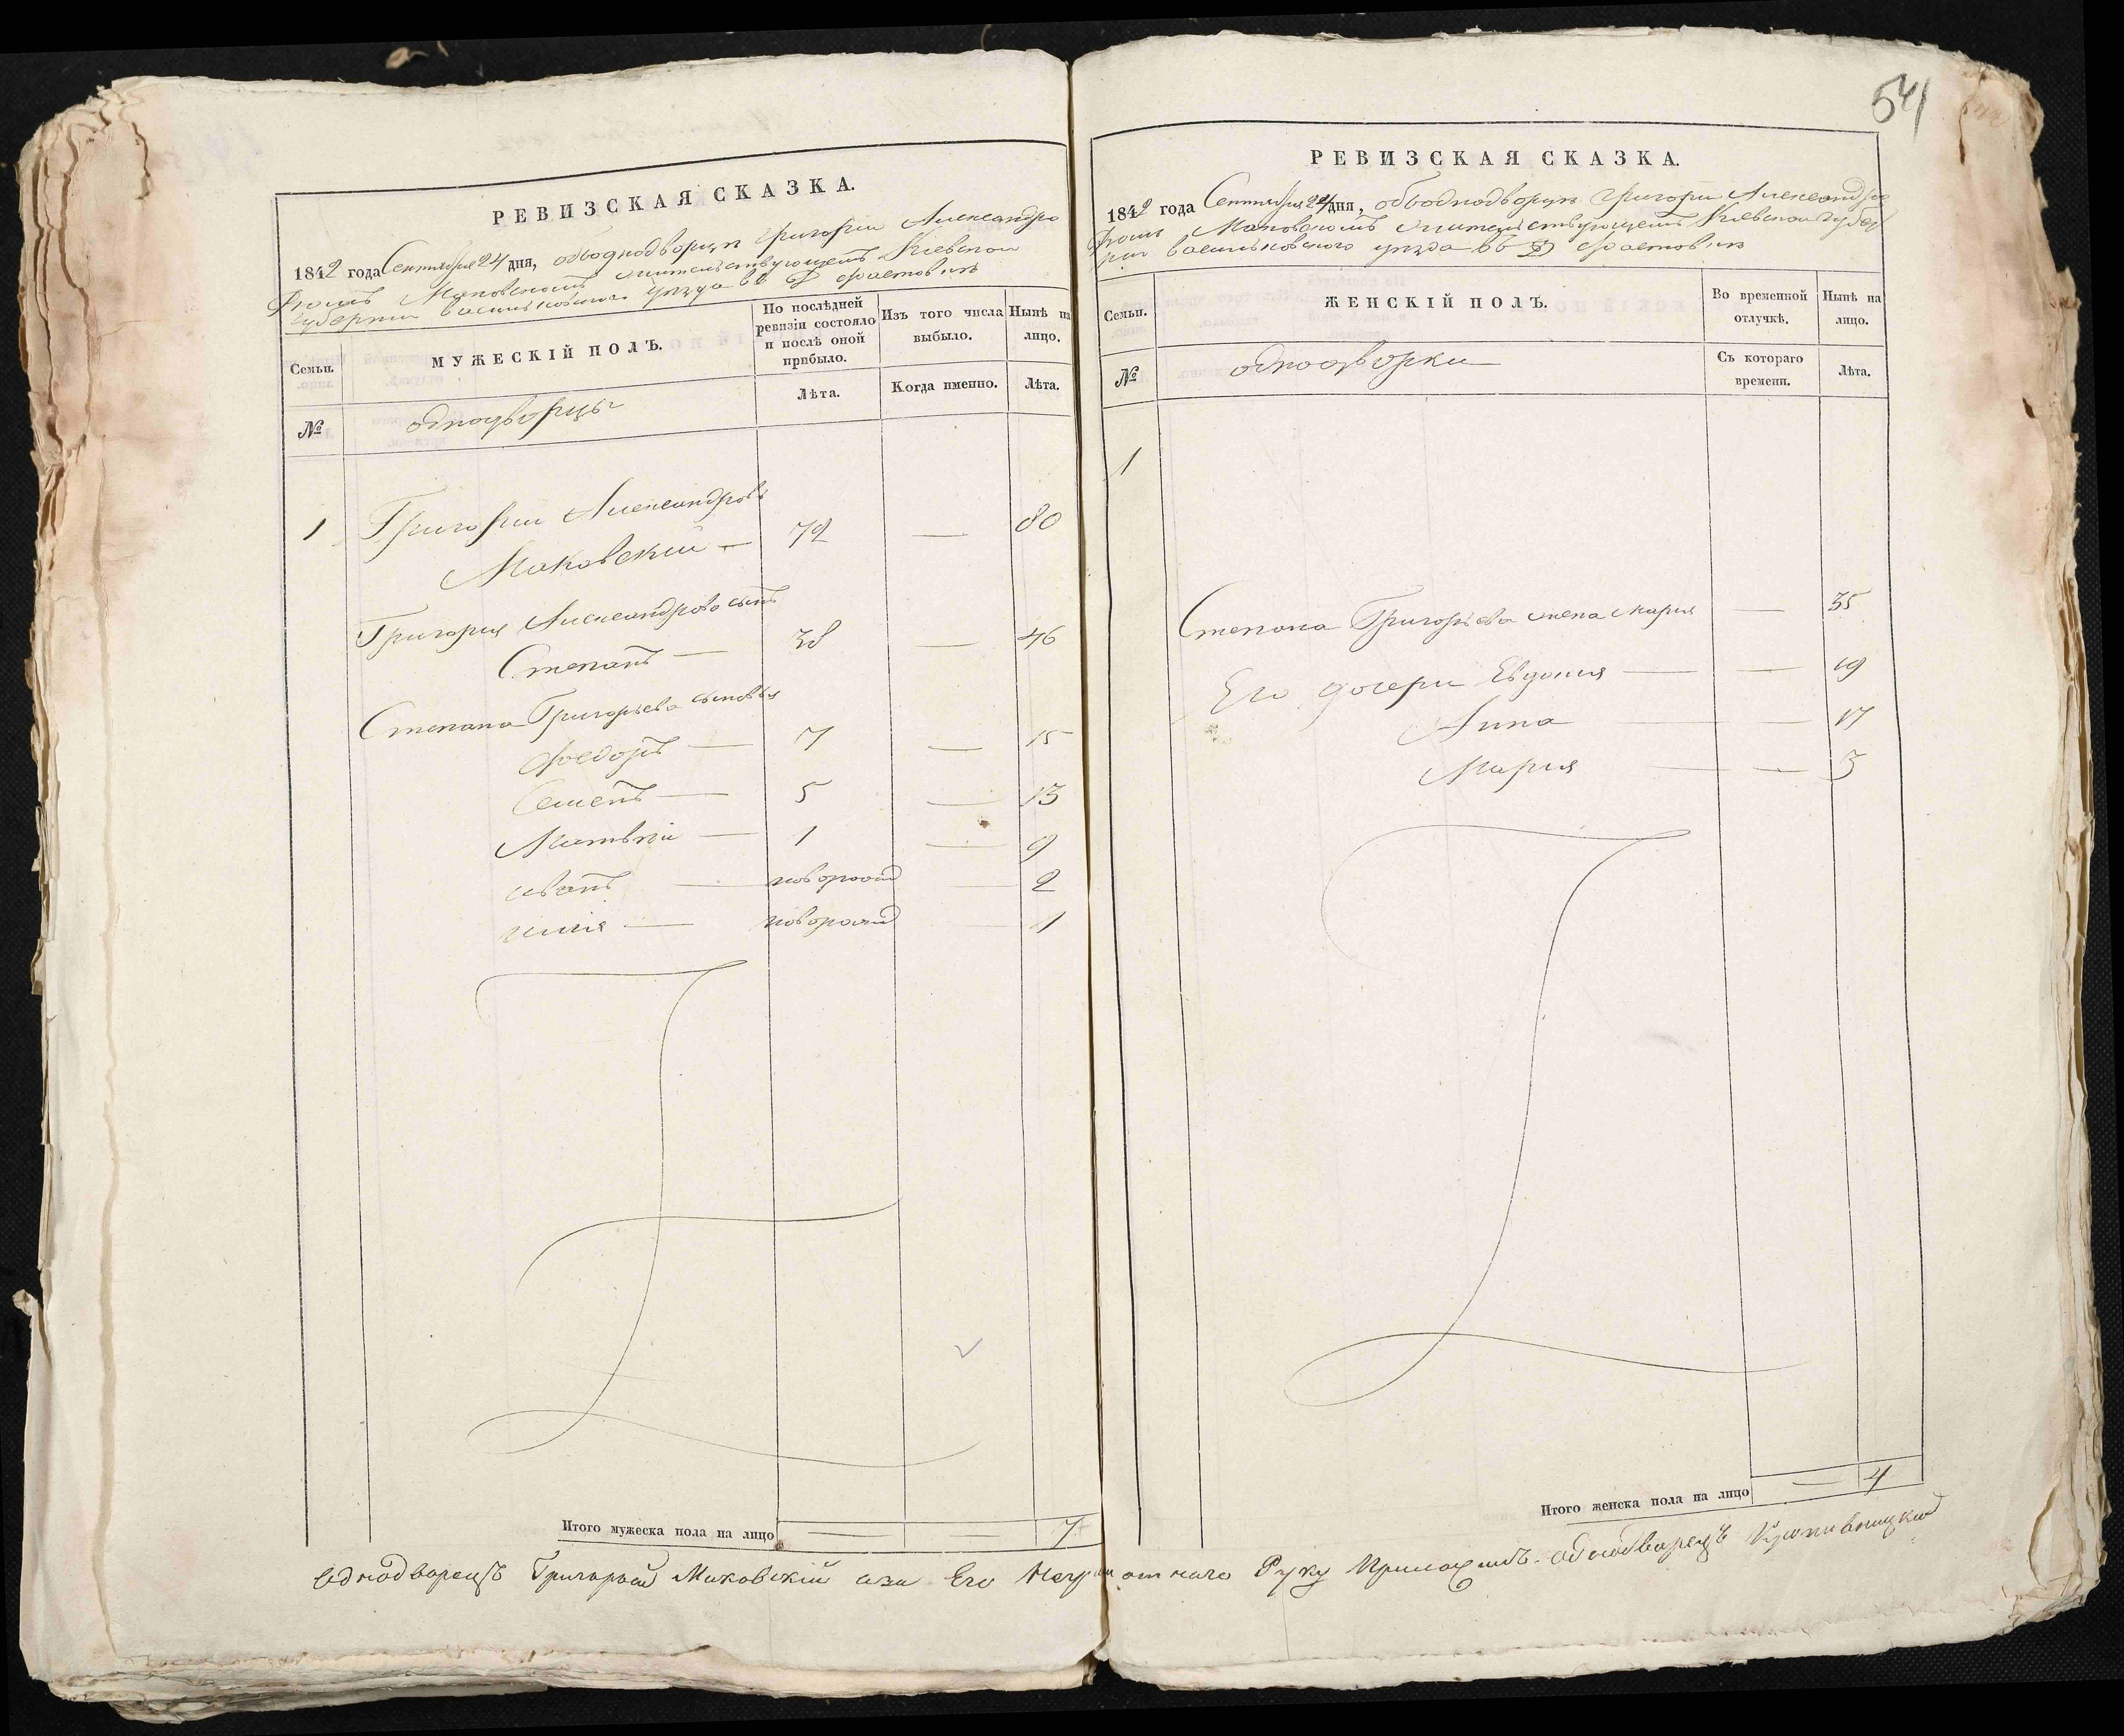 РЕВИЗСКАЯ СКАЗКА.
1842 года Сентября 24 дня, объ однодворцѣ Григории Александро
вомъ Маковскомъ жительствующемъ Киевской
губернии васильковского уѣзда въ фастовѣ
Семьи.
МУЖЕСКІЙ ПОЛЪ.
По послѣдней
ревизіи состояло
и послѣ оной
прибыло.
Изъ того числа
выбыло.
Нынѣ на
лицо.
№
однодворцы
Лѣта.
Когда именно.
Лѣта.
1 Григорий Александровъ
Маковский — 72 — 80
Григория Александрова сынъ
Степанъ — 38 — 46
Степана Григорьева сыновья
Федоръ — 7 — 15
Семенъ — 5 — 13
Матвѣй — 1 — 9
иванъ — новорожд 2
илия — новорожд 1
Итого мужеска пола на лицо — — 7
54
РЕВИЗСКАЯ СКАЗКА.
1842 года Сентября 24 дня, объ однодворцѣ Григории Александро
вомъ Маковскомъ жительствующемъ Киевской губер
нии васильковского уѣзда въ фастовѣ
Семьи.
ЖЕНСКІЙ ПОЛЪ.
Во временной
отлучкѣ.
Нынѣ на
лицо.
№
однодворки
Съ котораго
времени.
Лѣта.
1
Степана Григорьева жена Мария — 35
Его дочери Евдокия — — 19
Анна — — 17
Мария — — 3
Итого женска пола на лицо — 4
однодворецъ Григорий Маковский а за Его Негра
мотнаго Руку Приложилъ однодворецъ Кропивницкий